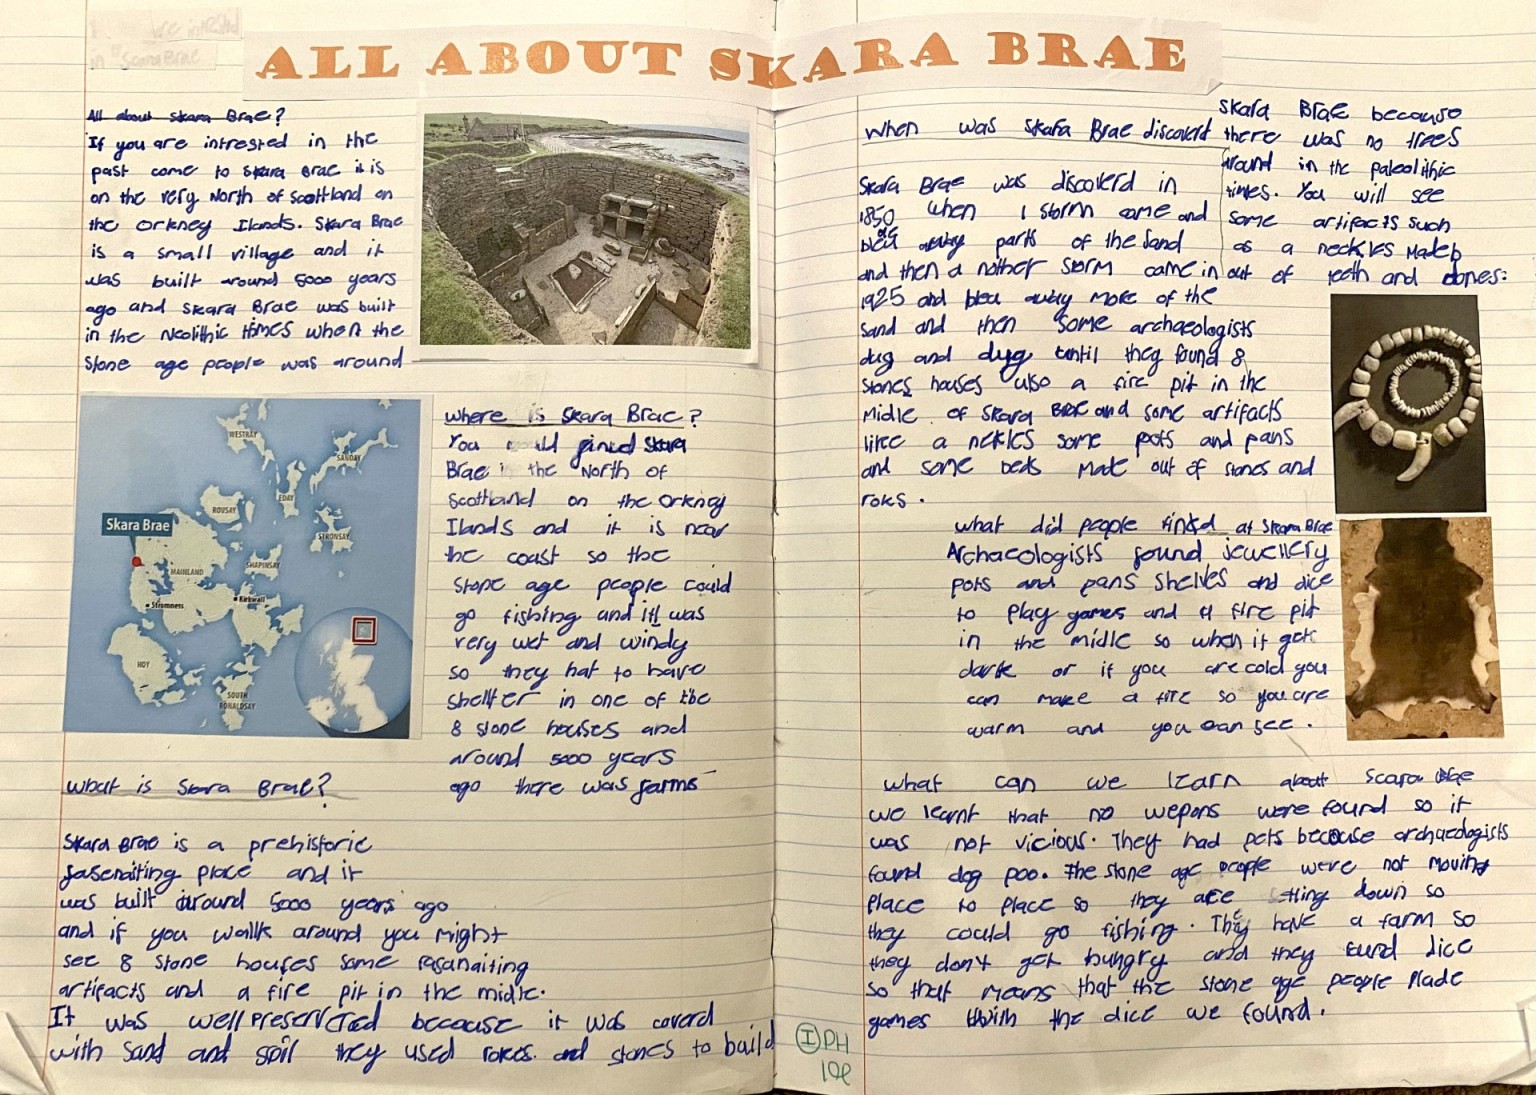 ALL ABOUT SKARA BRAE
All about Skara Brae?
If you are intrested in the
past come to Skara Brae it is
on the very North of Scottland on
the orkney Ilands. Skara Brae
is a small village and it
was built around 5000 years
ago and Skara Brae was built
in the Neolithic times when the
Stone age people was around
WESTRAY
SANDAY
EDAY
ROUSAY
STRONSAY
Skara Brae
SHAPINSAY
MAINLAND
Kirkwall
Stromness
HOY
SOUTH
RONALDSAY
Where is Skara Brae?
You could find Skara
Brae in the North of
Scottland on the orkney
Ilands and it is near
the coast so the
stone age people could
go fishing and it was
very wet and windy
so they hat to have
shelter in one of the
8 stone houses and
around 5000 years
ago there was farms
What is Skara Brae?
Skara Brae is a prehistoric
fasenaiting place and it
was built around 5000 years ago
and if you wallk around you might
see 8 stone houses some fasanaiting
artifacts and a fire pit in the midle.
It was well preserved because it was coverd
with sand and soil they used rokes and stones to build
Skara Brae because
there was no trees
around in the paleolithic
times. You will see
some artifacts such
as a neckles made
out of teeth and bones.
when was Skara Brae discoverd
Skara Brae was discoverd in
1850 when 1 storm came and
bleu away parts of the sand
and then a nother storm came in
1925 and bleu away more of the
sand and then some archaeologists
dug and dug until they found 8
stones houses also a fire pit in the
midle of Skara Brae and some artifacts
like a nekles some pots and pans
and some beds made out of stones and
roks.
what did people find at Skara Brae
Archaeologists found jewellery
pots and pans shelves and dice
to play games and a fire pit
in the midle so when it gets
dark or if you are cold you
can make a fire so you are
warm and you can see.
what can we learn about Scara Brae
we learnt that no wepons were found so it
was not vicious. They had pets because archaeologists
found dog poo. The stone age people were not moving
place to place so they are setling down so
they could go fishing. They have a farm so
they don't get hungry and they found dice
so that means that the stone age people plade
games with the dice we found.
I PH